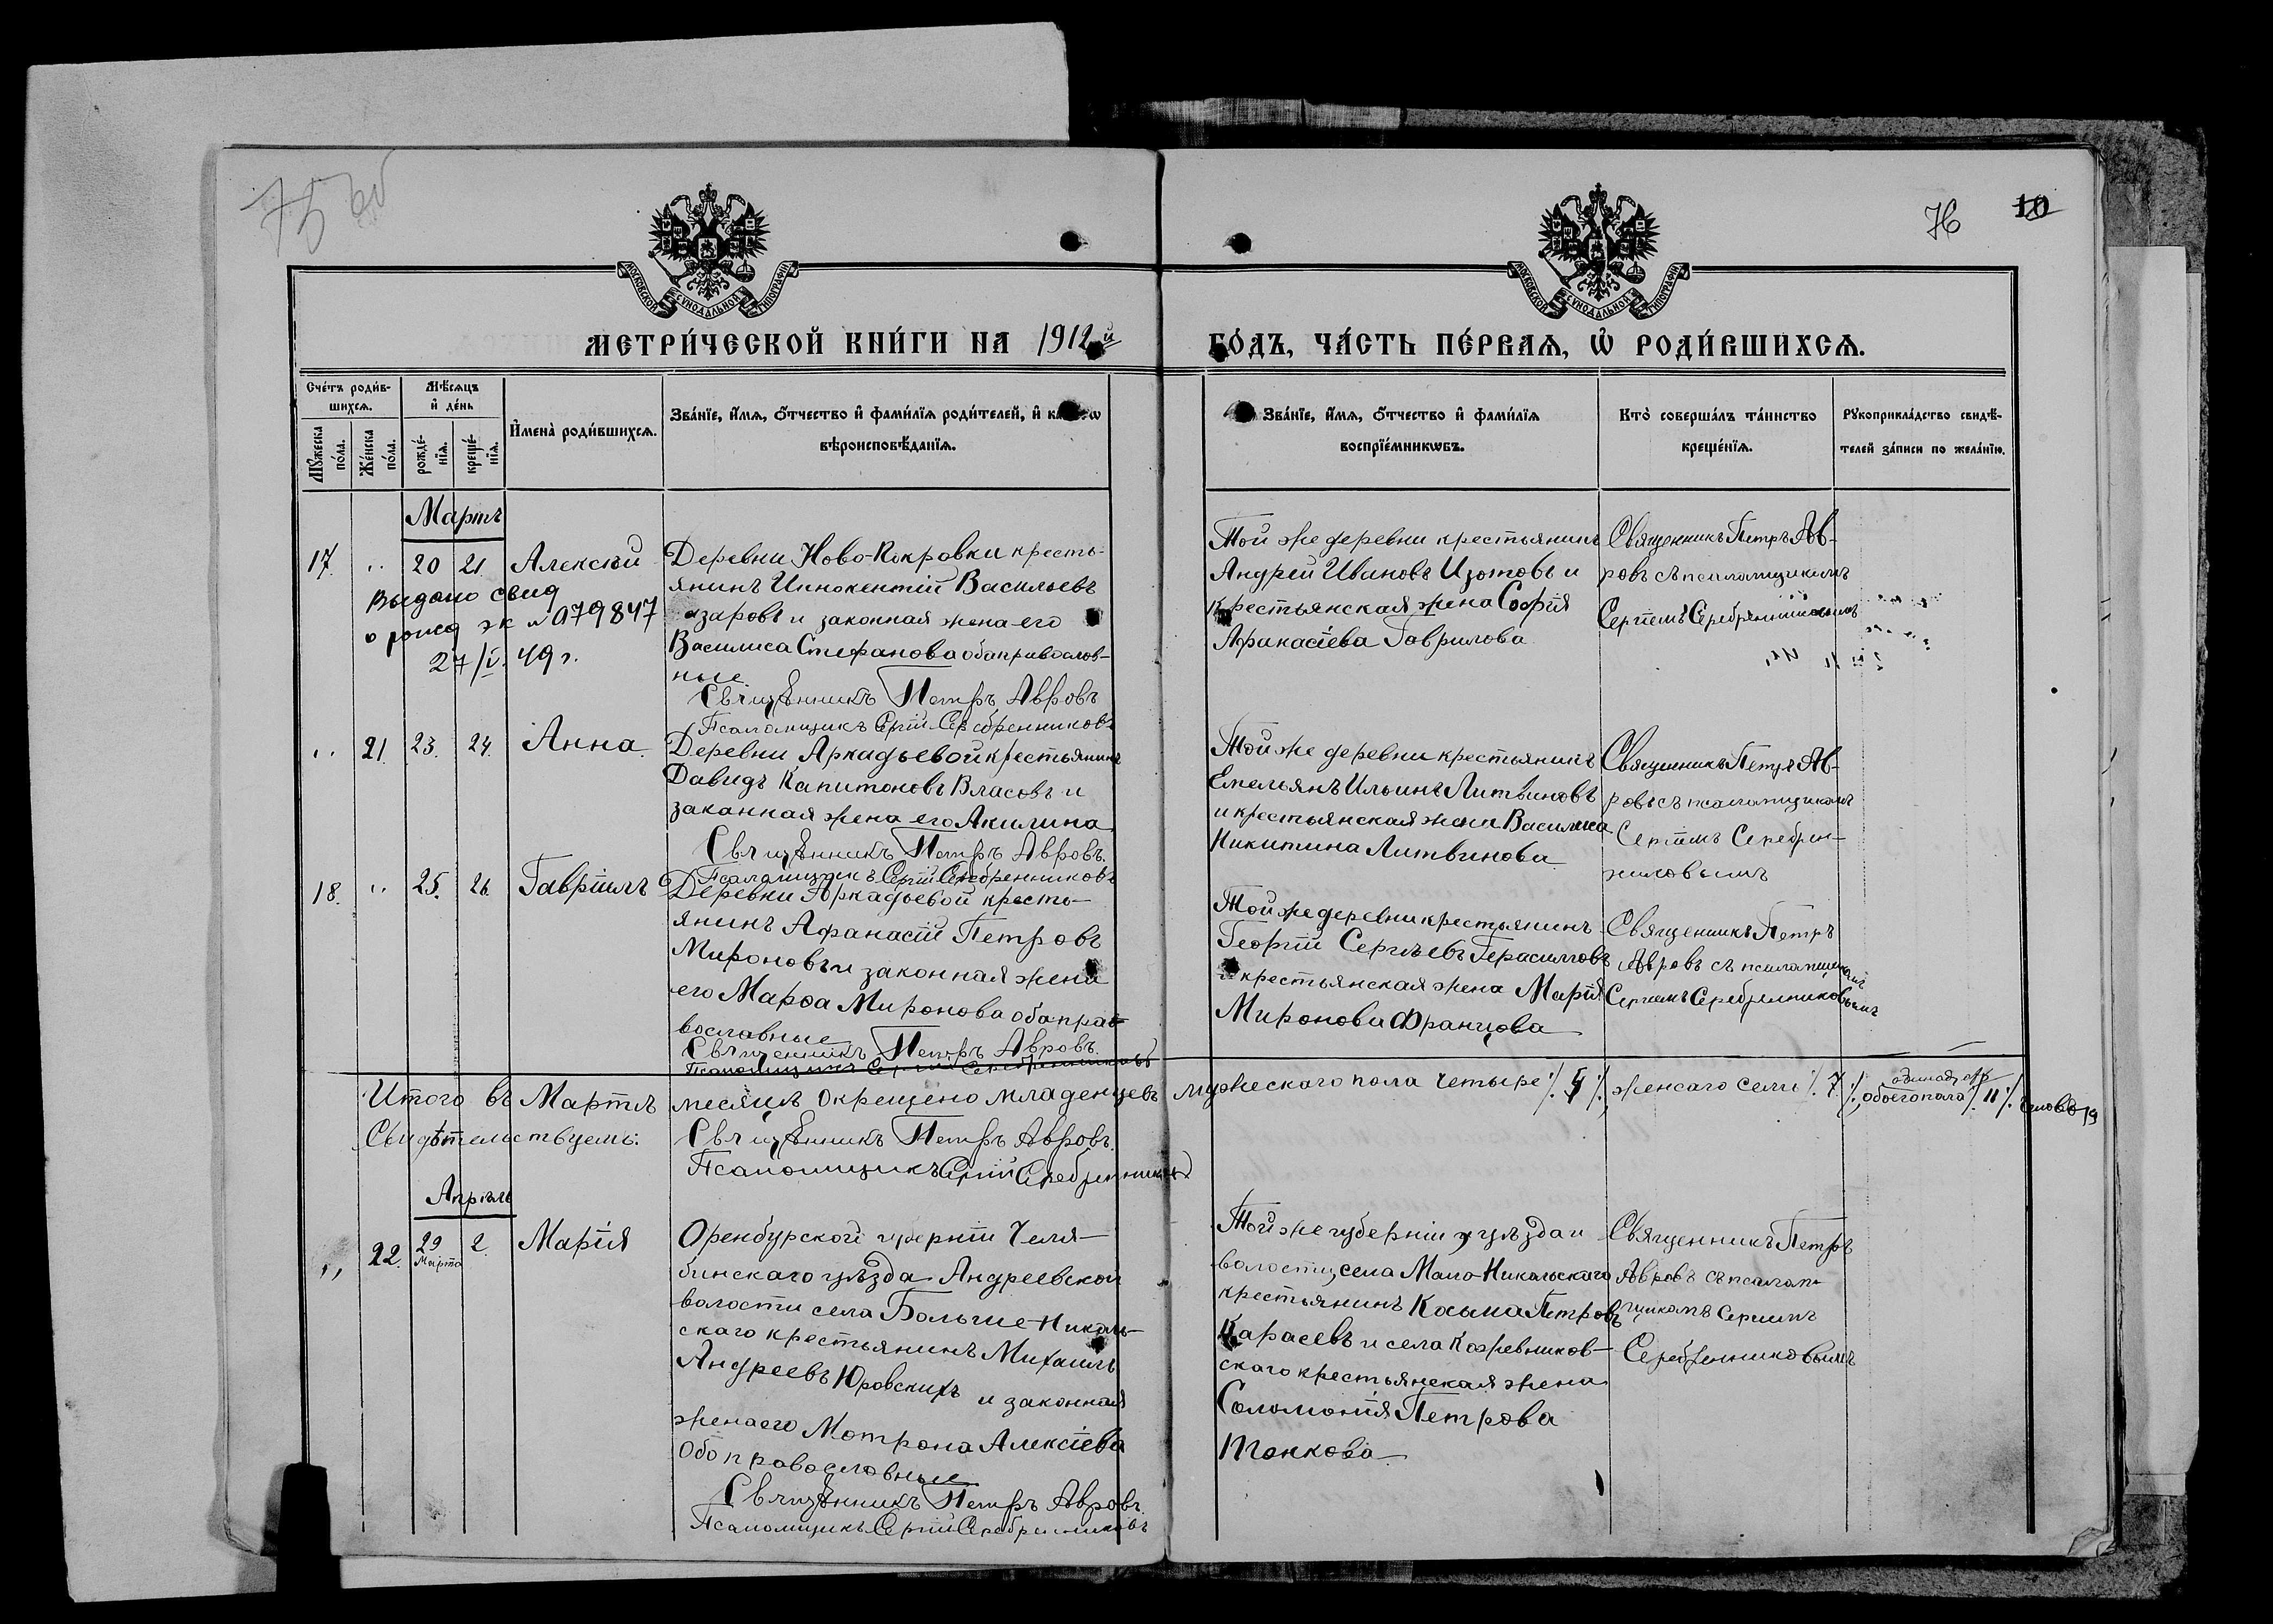 75 об
76
10
МОСКОВСКОЙ СѴНОДАЛЬНОЙ ТИПОГРАФІИ
МОСКОВСКОЙ СѴНОДАЛЬНОЙ ТИПОГРАФІИ
МЕТРИ́ЧЕСКОЙ КНИ́ГИ НА 1912й
ГО́ДЪ, ЧА́СТЬ ПЕ́РВАѦ, Ѡ҆ РОДИ́ВШИХСѦ.
Сче́тъ роди́в-
шихсѧ.
Мѣ́сѧцъ
и҆ де́нь
Мꙋ́жеска по́ла.
Же́нска по́ла.
рожде́-
нїѧ.
креще́-
нїѧ.
И҆мена̀ роди́вшихсѧ.
Зва́нїе, и҆́мѧ, ѻ҆́тчество и҆ фами́лїѧ роди́телей, и҆
вѣроисповѣ́данїѧ.
Зва́нїе, и҆́мѧ, ѻ҆́тчество и҆ фами́лїѧ
воспрїе́мникѡвъ.
Кто̀ соверша́лъ та́инство
креще́нїѧ.
Рꙋкоприкла́дство свидѣ́-
телей за́писи по жела́нїю.
Мартъ
17. " 20 21. Алексѣй
Выдано свид
о рожд эк № 079847
27/V. 49 г.
Деревни Ново-Покровки кресть-
янинъ Иннокентій Васильевъ
азаровъ и законная жена его
Василиса Стефанова оба православ-
ные
Священникъ Петръ Авровъ
Псаломщикъ Сергій Серебренниковъ
Той же деревни крестьянинъ
Андрей Ивановъ Изотовъ и
крестьянская жена Софія
Афанасіева Гаврилова
Священникъ Петръ Ав-
ровъ съ псаломщикомъ
Сергіемъ Серебренниковымъ
" 21. 23. 24. Анна
Деревни Аркадьевой крестьянинъ
Давидъ Капитоновъ Власовъ и
законная жена его Акилина
Священникъ Петръ Авровъ.
Псаломщикъ Сергій Серебренниковъ
Той же деревни крестьянинъ
Емельянъ Ильинъ Литвиновъ
и крестьянская жена Василиса
Никитина Литвинова
Священникъ Петръ Ав-
ровъ съ псаломщикомъ
Сергіемъ Серебрен-
никовымъ
18. " 25. 26. Гавріилъ
Деревни Аркадьевой кресть-
янинъ Афанасій Петровъ
Мироновъ и законная жена
его Марѳа Миронова оба пра-
вославные
Священникъ Петръ Авровъ.
Псаломщикъ Сергій Серебренниковъ
Той же деревни крестьянинъ
Георгій Сергѣевъ Герасимовъ
и крестьянская жена Марія
Миронова Францова
Священникъ Петръ
Авровъ съ псаломщикомъ
Сергіемъ Серебренниковымъ
Итого въ Мартѣ месяцѣ окрещено младенцевъ мужескаго пола четыре /. 4 /. женсаго семь /. 7 /. одинадцать
обоего пола /. 11 /. человѣ
Свидѣтельствуемъ: Священникъ Петръ Авровъ.
Псаломщикъ Сергій Серебренниковъ
Апрѣль
" 22. 29 Марта 2. Марія
Оренбурской губерніи Челя-
бинскаго уѣзда Андреевской
волости села Больше-Николь-
скаго крестьянинъ Михаилъ
Андреевъ Юровскихъ и законная
жена его Мотрона Алексіева
Оба православные
Священникъ Петръ Авровъ.
Псаломщикъ Сергій Серебренниковъ
Той же губерніи уѣзда и
волости, села Мало-Никольскаго
крестьянинъ Косьма Петровъ
Карасевъ и села Кожевников-
скаго крестьянская жена
Соломонія Петрова
Тонкова
Священникъ Петръ
Авровъ съ псалом-
щикомъ Сергіемъ
Серебренниковымъ